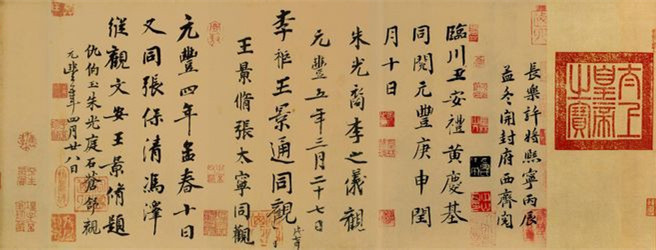 太上
皇帝
之寶
長樂許將熙寧丙辰
孟冬開封府西齋閱
臨川王安禮黃慶基
同閱元豐庚申閏
月十日
朱光裔李之儀觀
元豐五年三月二十七日
李祏王景通同觀
王景脩張太寧同觀
元豐四年孟春十日
又同張保清馮澤
縱觀文安王景脩題
仇伯玉朱光庭石蒼舒觀
元豐五年四月廿八日